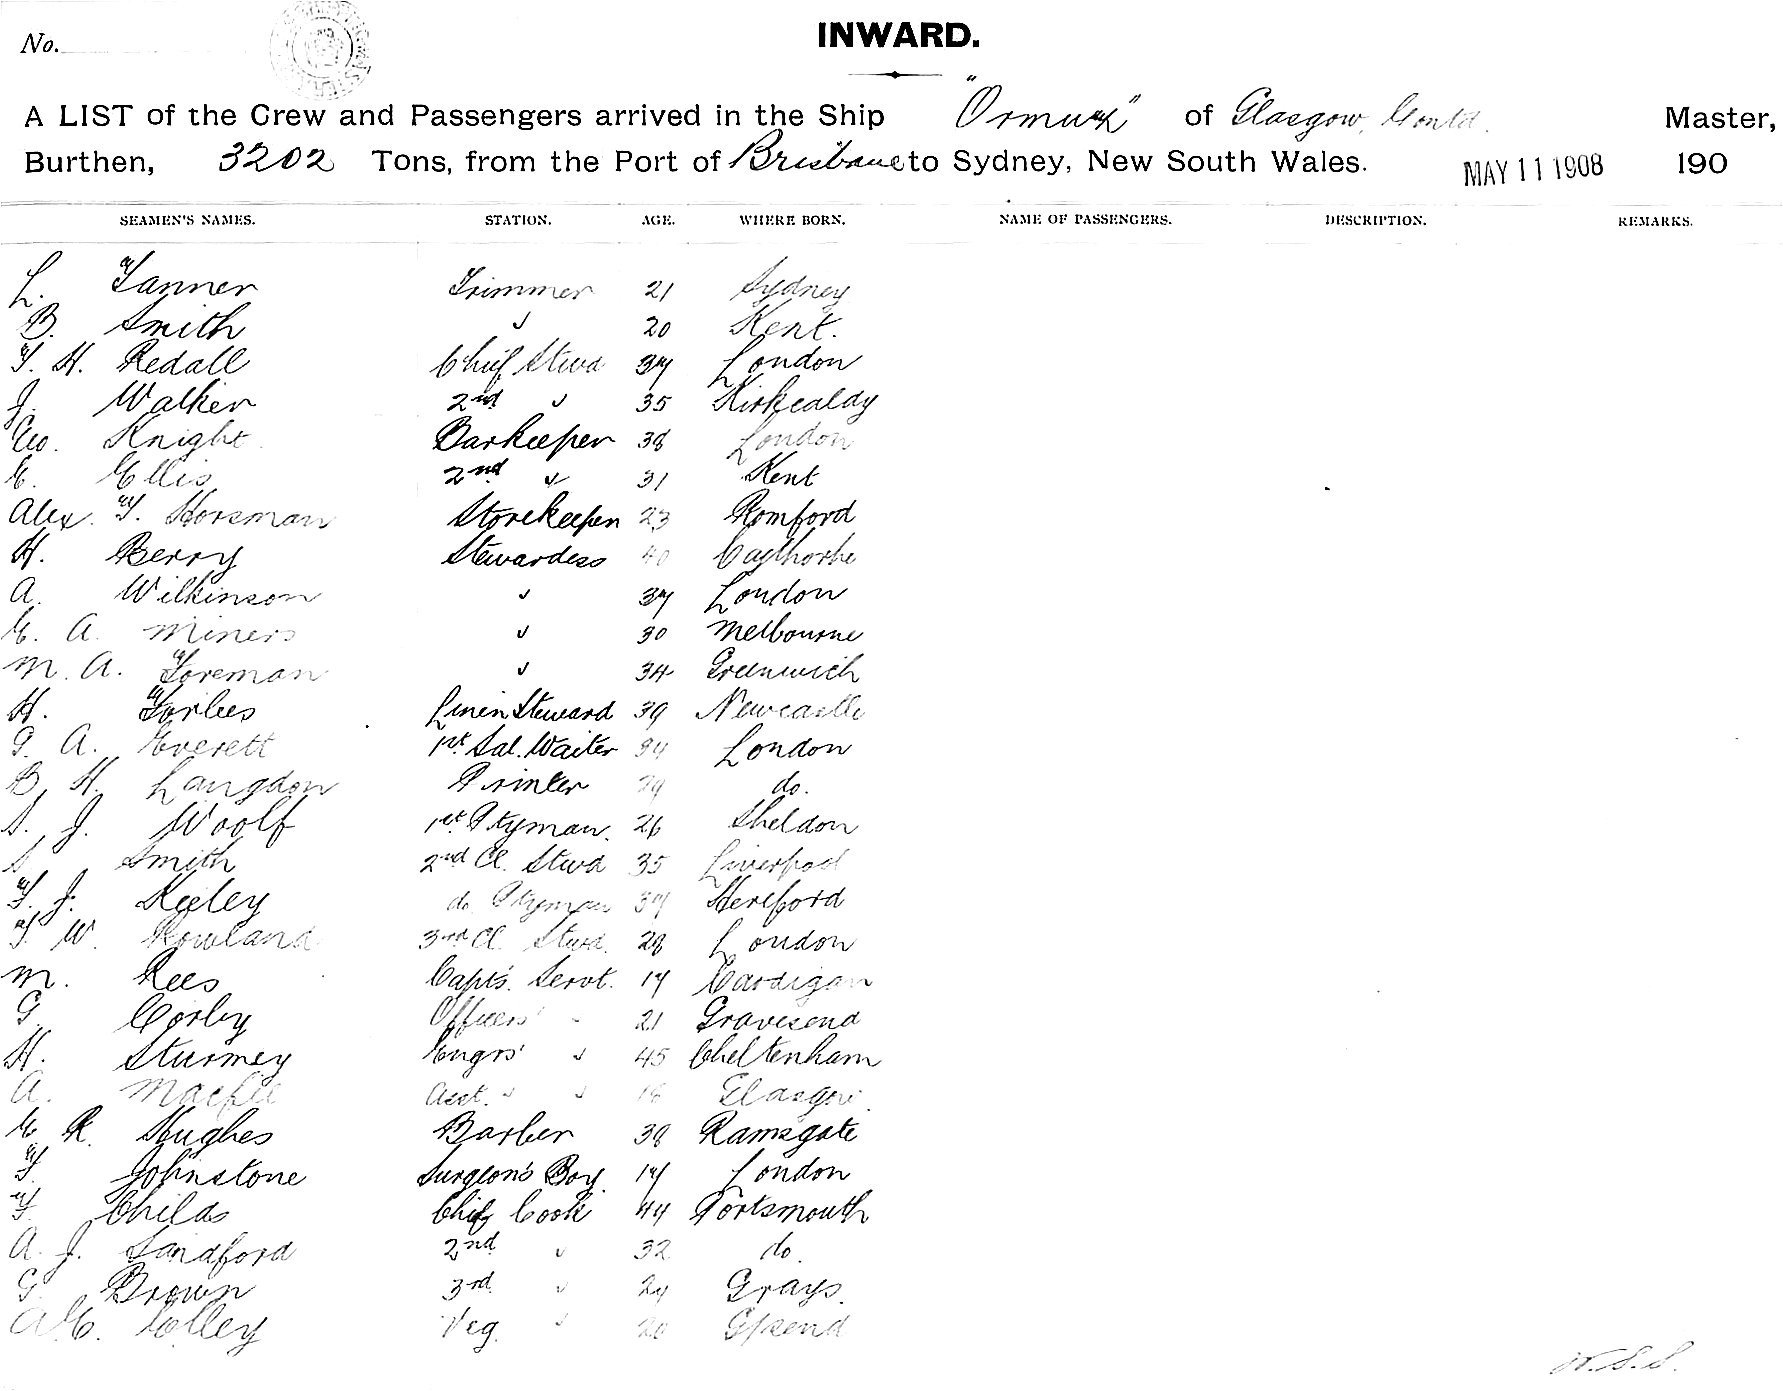 No.
INWARD.
A LIST of the Crew and Passengers arrived in the Ship "Ormuz" of Glasgow, Gould Master,
Burthen, 3202 Tons, from the Port of Brisbane to Sydney, New South Wales. MAY 11 1908 190
SEAMEN'S NAMES. STATION. AGE. WHERE BORN. NAME OF PASSENGERS. DESCRIPTION. REMARKS.
L. Tanner Trimmer 21 Sydney
B. Smith " 20 Kent.
T. H. Redall Chief Stwd 37 London
J. Walker 2nd " 35 Kirkcaldy
Geo. Knight Barkeeper 38 London
E. Ellis 2nd " 31 Kent
Alex. F. Horsman Storekeeper 23 Romford
H. Berry Stewardess 40 Caythorpe
A. Wilkinson " 37 London
E. A. Miners " 30 Melbourne
M. A. Foreman " 34 Greenwich
H. Forbes Linen Steward 39 Newcastle
G. A. Everett 1st Sal. Waiter 34 London
B. H. Langdon Printer 29 do.
S. J. Woolf 1st Ptyman. 26 Sheldon
S. Smith 2nd Cl. Stwd 35 Liverpool
F. J. Keeley do Ptyman 37 Hereford
F. W. Rowland 3rd Cl. Stwd. 28 London
M. Rees Capt's. Servt. 17 Cardigan
G Corby Officers' " 21 Gravesend
H. Sturmey Engrs' " 45 Cheltenham
A. Macfie Asst. " " 18 Glasgow.
E R. Hughes Barber 38 Ramsgate
F. Johnstone Surgeon's Boy 17 London
F. Childs Chief Cook 44 Portsmouth
A. J. Sandford 2nd " 32 do.
G. Brown 3rd " 24 Grays.
A. E. Colley Veg. " 20 G/send
W.S.S.